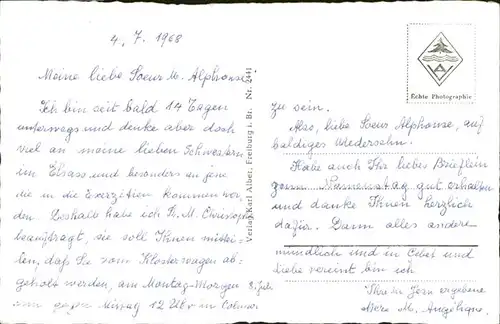 4. 7. 1968
Meine liebe Soeur M. Alphonse
Ich bin seit bald 14 Tagen
unterwegs und denke aber doch
viel an meine lieben Schwestern
im Elsass und besonders an jene
die in die Exerzitien kommen wer-
den. Deshalb habe ich Sr. M.
beauftragt, sie soll Ihnen mittei-
len, daß Sie vom Klosterwagen ab-
geholt werden, am Montag-Morgen 8. Juli
gegen Mittag 12 Uhr in Colmar
Verlag Karl Alber, Freiburg i. Br. Nr. 2441
Echte Photographie
zu sein.
Also, liebe Soeur Alphonse, auf
baldiges Wiedersehn.
Habe auch Ihr liebes Brieflein
zum Namenstag gut erhalten
und danke Ihnen herzlich
dafür. Dann alles andere
mündlich und in Gebet und
Liebe vereint bin ich
Ihre im Herrn ergebene
M. Angelique.